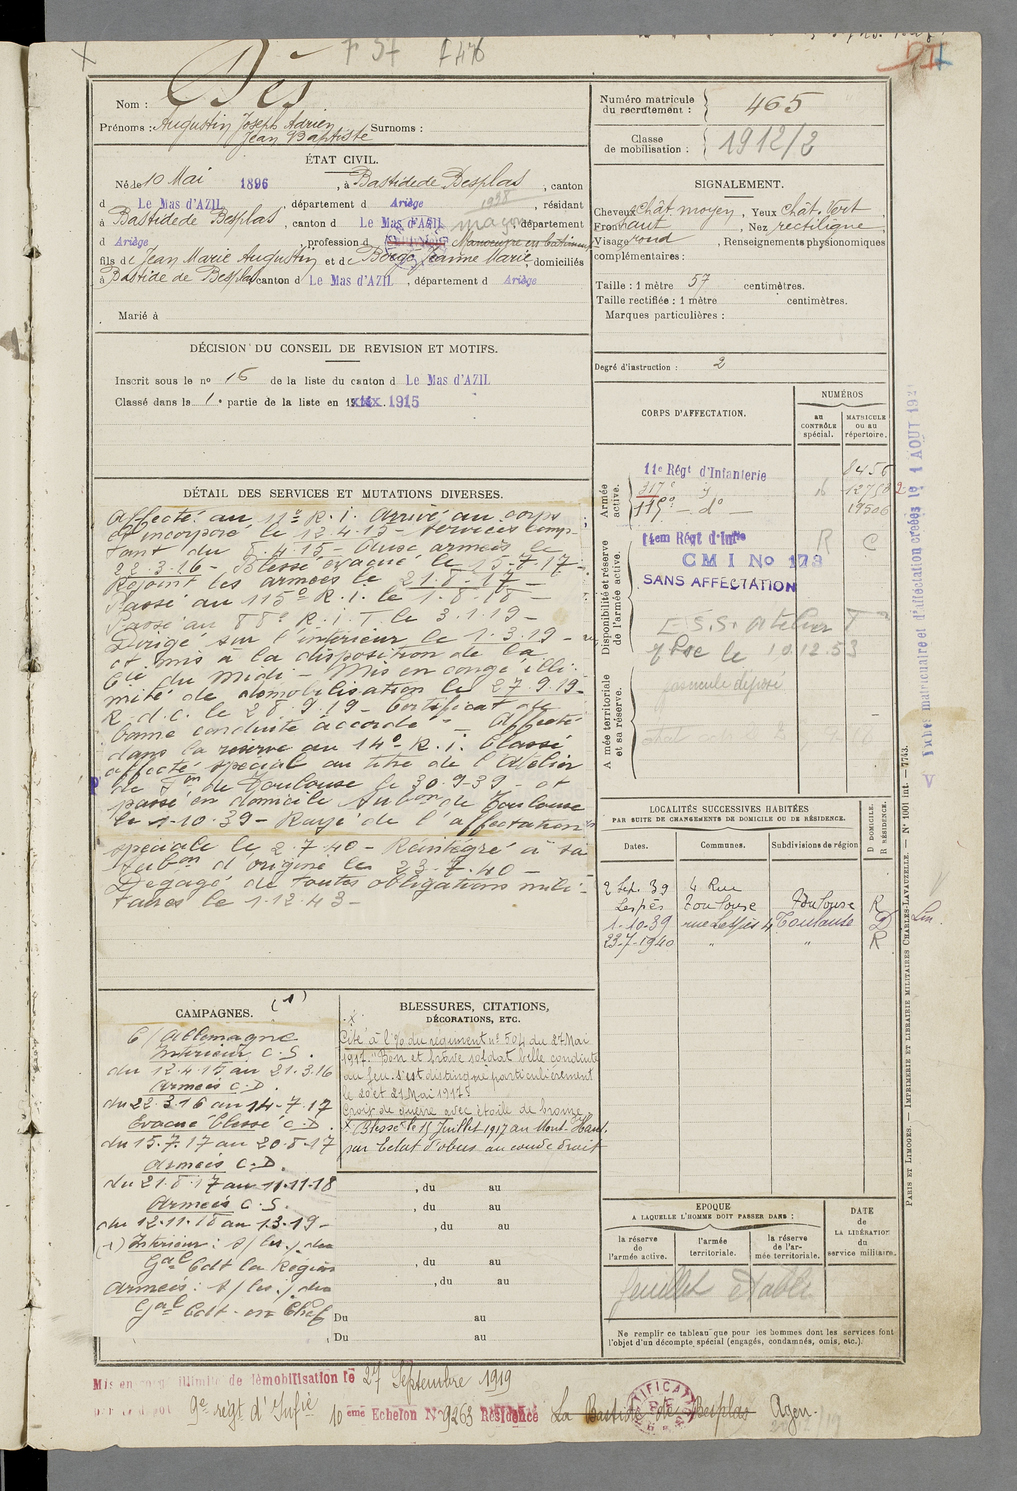 7 57
1476
Dès
Nom :
Prénoms : Augustin Joseph Adrien
Jean Baptiste
Surnoms :
Numéro matricule
du recrutement : 465
Classe
de mobilisation : 1912/2
ÉTAT CIVIL.
Né le 10 Mai 1896, à Bastide de Besplas, canton
d Le Mas d'AZIL, département d Ariège, résidant
à Bastide de Besplas, canton d Le Mas d'AZIL, département
d Ariège, profession d Manoeuvre en bâtiment
fils de Jean Marie Augustin et de Borgo Jeanne Marie, domiciliés
à Bastide de Besplas, canton d Le Mas d'AZIL, département d Ariège
Marié à
SIGNALEMENT.
Cheveux chât moyen, Yeux chât. Vert
Front haut, Nez rectiligne
Visage rond, Renseignements physionomiques
complémentaires :
Taille : 1 mètre 57 centimètres.
Taille rectifiée : 1 mètre centimètres.
Marques particulières :
Degré d'instruction : 2
DÉCISION DU CONSEIL DE REVISION ET MOTIFS.
Inscrit sous le n° 16 de la liste du canton d Le Mas d'AZIL
Classé dans la 1e partie de la liste en 1915
CORPS D'AFFECTATION.
NUMÉROS
au CONTRÔLE spécial.
MATRICULE ou au répertoire.
Armée active.
11e Régt d'Infanterie 8456
317° d° 16 12750
115° — d° — 19506
Disponibilité et réserve de l'armée active.
14em Régt d'Infie R C
CMI No 173
SANS AFFECTATION
E.S.S. Atelier T
le 10.12.53
Armée territoriale et sa réserve.
fascicule déposé
DÉTAIL DES SERVICES ET MUTATIONS DIVERSES.
Affecté au 11e R.I. Arrivé au corps
et incorporé le 12.4.15 — Services comp-
tant du 9.4.15 — Passé aux armées le
22.3.16 — Blessé évacué le 15-7-17 —
Rejoint les armées le 21-8-17 —
Passé au 115e R.I. le 1-8-18 —
Passé au 88e R.I.T. le 3.1.19 —
Dirigé sur l'intérieur le 1.3.19 —
et mis à la disposition de la
Cie du Midi — Mis en congé illi-
mité de démobilisation le 27.9.19 —
R.d.c. le 28.9.19 — Certificat de
bonne conduite accordé — Affecté
dans la réserve au 14e R.I. Classé
affecté spécial au titre de l'Atelier
de Fon de Toulouse le 30.9.39 — et
passé en domicile Subon de Toulouse
le 1-10.39 — Rayé de l'affectation
spéciale le 2.7.40 — Réintégré à sa
Subon d'origine le 23.7.40 —
Dégagé de toutes obligations mili-
taires le 1.12.43 —
LOCALITÉS SUCCESSIVES HABITÉES
PAR SUITE DE CHANGEMENTS DE DOMICILE OU DE RÉSIDENCE.
Dates. Communes. Subdivisions de région
D DOMICILE. R RÉSIDENCE.
2 Sep. 39 4 Rue
Lespès Toulouse Toulouse R
1-10-39 rue Lespès 4 Toulouse D
23-7-1940 " " R
CAMPAGNES. (1)
C/ Allemagne
Intérieur C.S.
du 12.4.15 au 21.3.16
Armées C.D.
du 22.3.16 au 14-7.17
Evacué blessé C.D.
du 15.7.17 au 20-8-17
Armées C.D.
du 21.8.17 au 11-11-18
Armées C.S.
du 12.11.18 au 1.3.19 —
(1) Intérieur : s/ les / du
Gal Cdt la Région
Armées : s/ les / du
Gal Cdt en Chef
BLESSURES, CITATIONS,
DÉCORATIONS, ETC.
Cité à l'% du régiment n° 504 du 27 Mai
1917. "Bon et brave soldat belle conduite
au feu. s'est distingué particulièrement
le 20 et 21 Mai 1917"
Croix de guerre avec étoile de bronze
Blessé le 15 Juillet 1917 au Mont-Haut
par éclat d'obus au coude droit
, du au
, du au
, du au
, du au
, du au
Du au
, Du au
ÉPOQUE
A LAQUELLE L'HOMME DOIT PASSER DANS :
la réserve de l'armée active.
l'armée territoriale.
la réserve de l'armée territoriale.
DATE
de la LIBÉRATION
du service militaire.
feuillet établi
Ne remplir ce tableau que pour les hommes dont les services font
l'objet d'un décompte spécial (engagés, condamnés, omis, etc.).
Mis en congé illimité de démobilisation le 27 Septembre 1919
par le dépôt 9e régt d'Infie 10 eme Echelon N° 9263 Résidence La Bastide de Besplas Agen.
PARIS ET LIMOGES. — IMPRIMERIE ET LIBRAIRIE MILITAIRES CHARLES-LAVAUZELLE. — N° 1001 int. — 7743.
V Fiches matriculaire et d'affectation créées le 1 AOUT 192